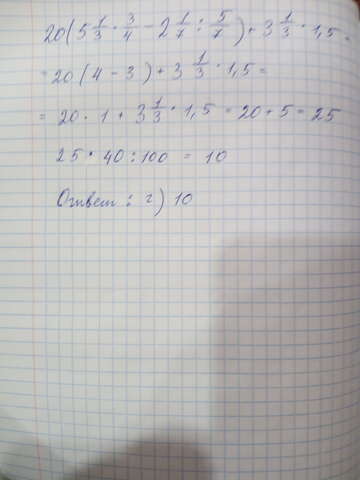 20(5 1/3 · 3/4 − 2 1/7 : 5/7) + 3 1/3 · 1,5 =
= 20(4 − 3) + 3 1/3 · 1,5 =
= 20 · 1 + 3 1/3 · 1,5 = 20 + 5 = 25
25 · 40 : 100 = 10
Ответ : г) 10